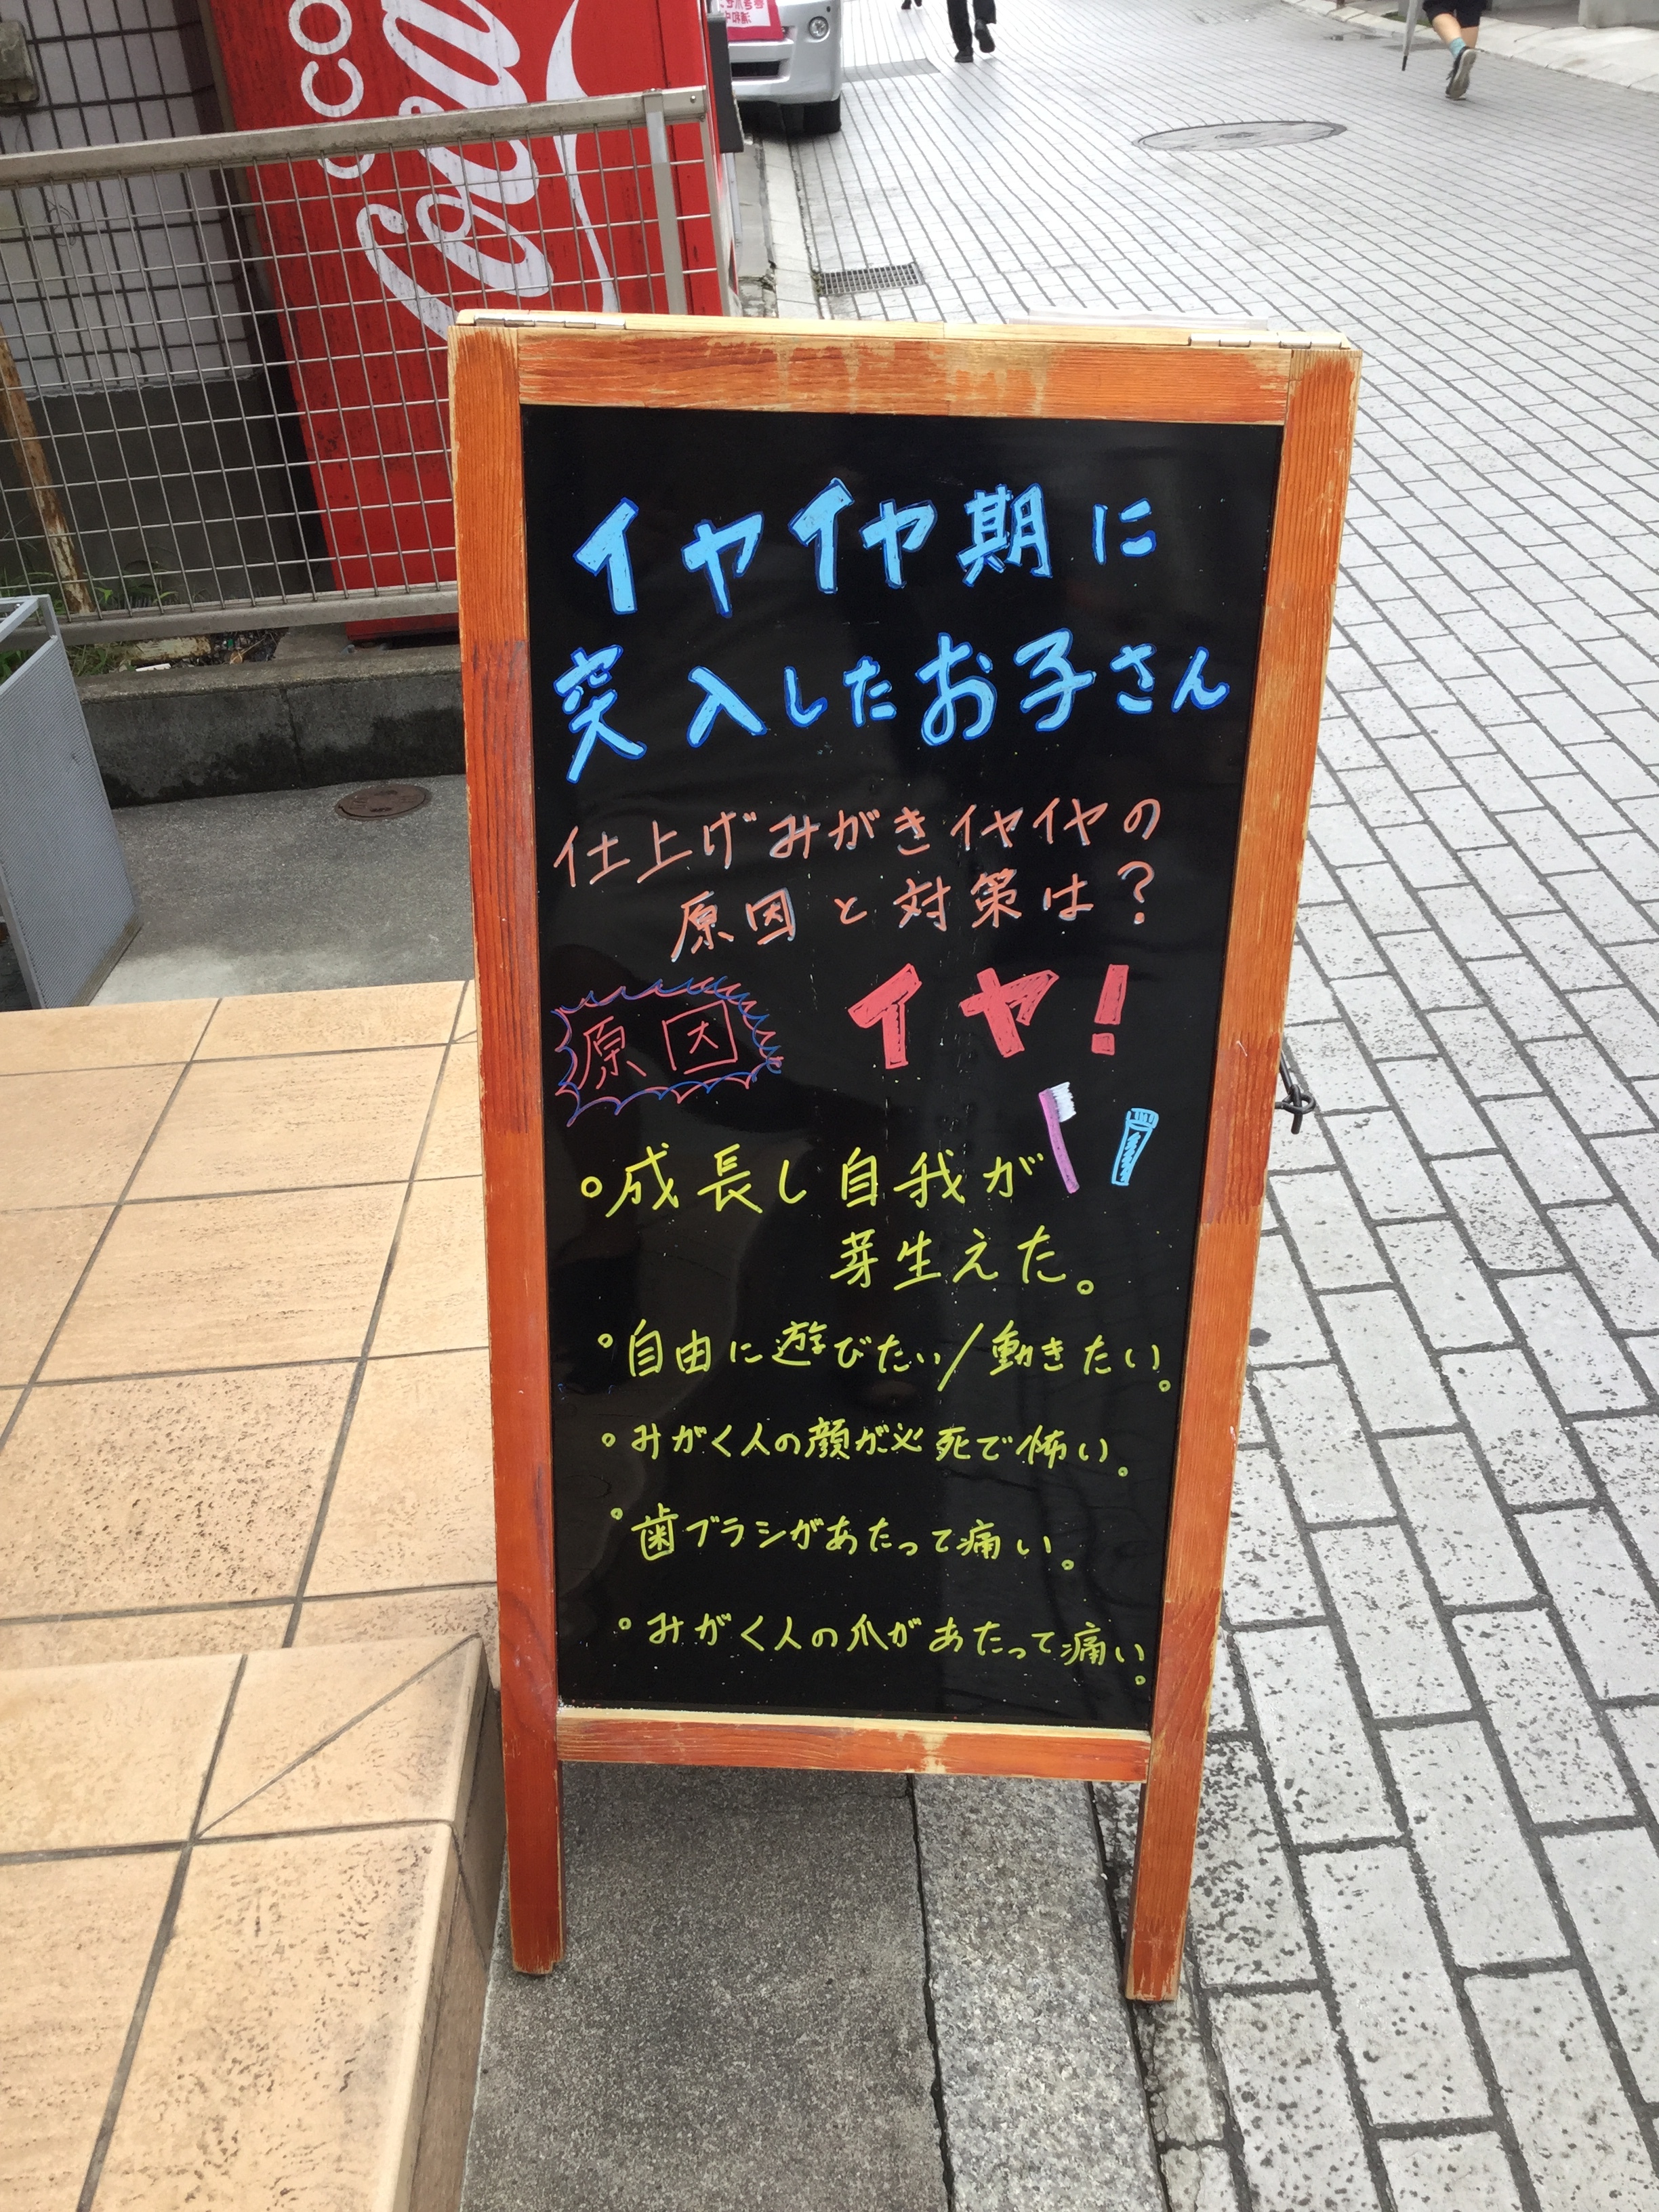 Coca
CO
イヤイヤ期に
突入したお子さん
仕上げみがきイヤイヤの
原因と対策は?
原因
イヤ!
°成長し自我が
芽生えた。
°自由に遊びたい/動きたい。
°みがく人の顔が必死で怖い。
°歯ブラシがあたって痛い。
°みがく人の爪があたって痛い。